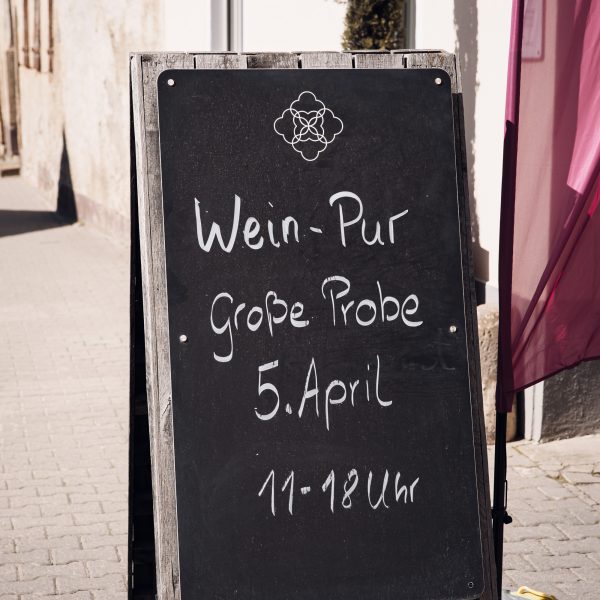 Wein - Pur
Große Probe
5. April
11-18 Uhr